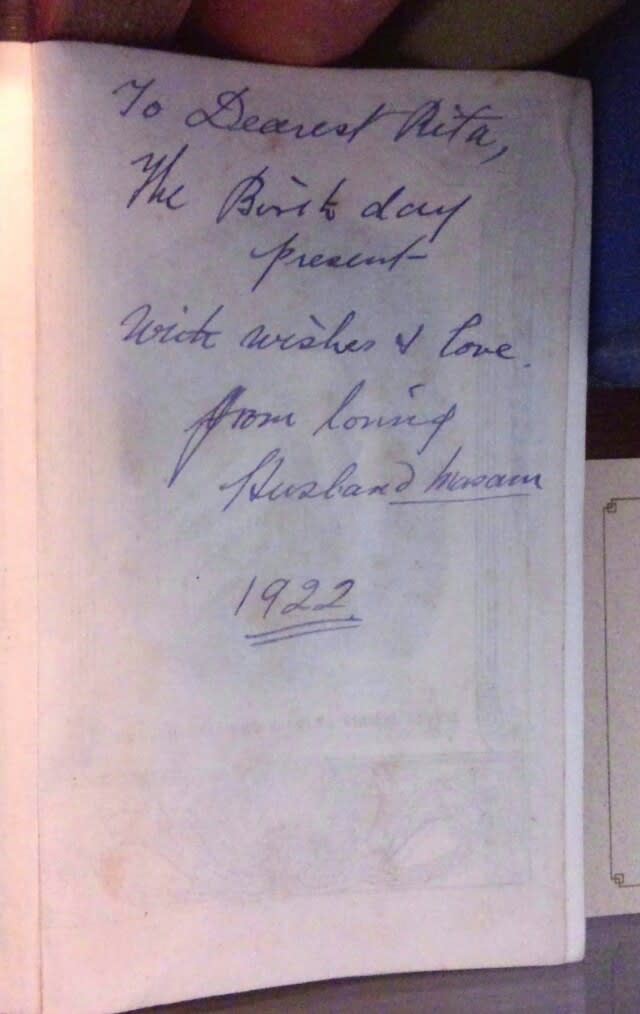 To Dearest Rita,
The Birth day
present
With wishes & love.
from loving
Husband
1922